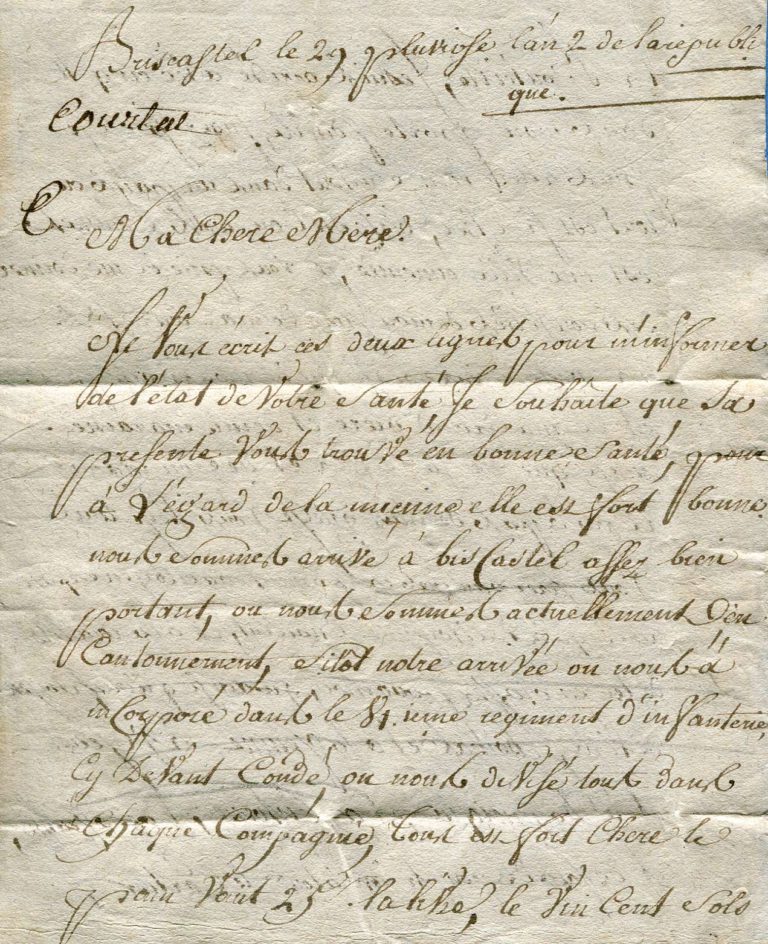 Briscastel le 29 pluviose lan 2 de la republi
que.
Ma Chere Mere.
Je Vous ecrit ces deux lignes pour m'informer
de l'état de Votre Santé, Je Souhaite que Sa
presente Vous trouve en bonne Santé, pour
à L'égard de la mienne elle est fort bonne.
nous Sommes arrivé à bisCastel assez bien
portant, ou nous Sommes actuellement
Cantonnement, Sitôt notre arrivée on nous à
inCorpore dans le regiment d'infanterie,
Cy Devant Condé, on nous divisé tous dans
Chaque Compagnie, tous est fort Chere le
pain Vout 25 le Vin Cent Sols